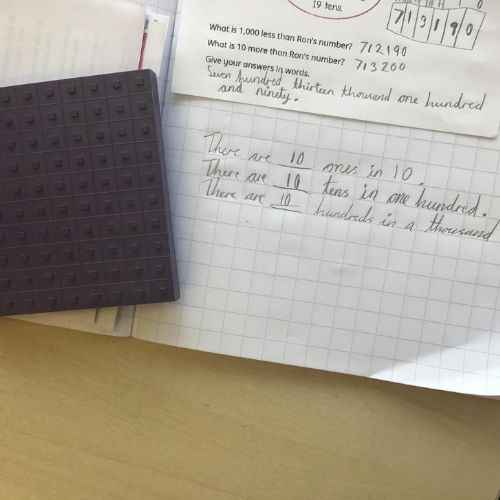 19 tens.
H O
7 1 3 1 9 0
What is 1,000 less than Ron's number? 712190
What is 10 more than Ron's number? 713200
Give your answers in words.
Seven hundred thirteen thousand one hundred
and ninety.
There are 10 ones in 10.
There are 10 tens in one hundred.
There are 10 hundreds in a thousand